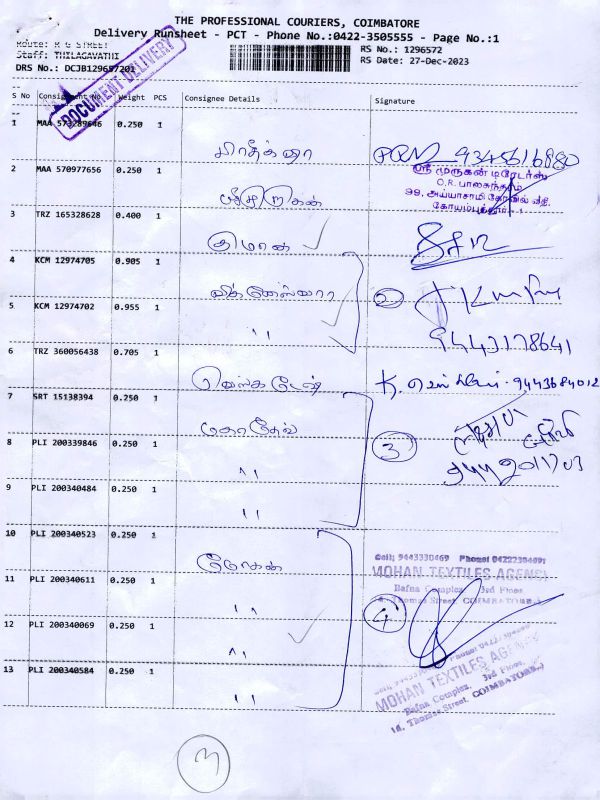 THE PROFESSIONAL COURIERS, COIMBATORE
Delivery Runsheet - PCT - Phone No.:0422-3505555 - Page No.:1
Route: R G STREET
Staff: THILAGAVATHI
RS No.: 1296572
RS Date: 27-Dec-2023
DRS No.: DCJB129657201
DOCUMENT DELIVERY
S No Consignment No. Weight PCS Consignee Details Signature
1 MAA 573289646 0.250 1
9345616880
2 MAA 570977656 0.250 1
ஸ்ரீ முருகன் டிரேடர்ஸ்
O.R. பாலசுந்தரம்
99, அய்யாசாமி கோவில் வீதி,
கோயம்புத்தூர்-1
3 TRZ 165328628 0.400 1 குமரன்
4 KCM 12974705 0.905 1 விக்னேஸ்வரா
2
5 KCM 12974702 0.955 1 ,,
9443178641
6 TRZ 360056438 0.705 1
9443684012
7 SRT 15138394 0.250 1 மகாதேவ்
8 PLI 200339846 0.250 1 ,,
3
9 PLI 200340484 0.250 1 ,,
10 PLI 200340523 0.250 1 மோகன்
Cell: 9443330469 Phone: 0422230469
MOHAN TEXTILES AGENCY
Bafna Complex, 3rd Floor,
16, Thomas Street, COIMBATORE-1
11 PLI 200340611 0.250 1 ,,
4
12 PLI 200340069 0.250 1 ,,
13 PLI 200340584 0.250 1 ,,
MOHAN TEXTILES AGENCY
Bafna Complex, 3rd Floor,
16, Thomas Street, COIMBATORE-1
3